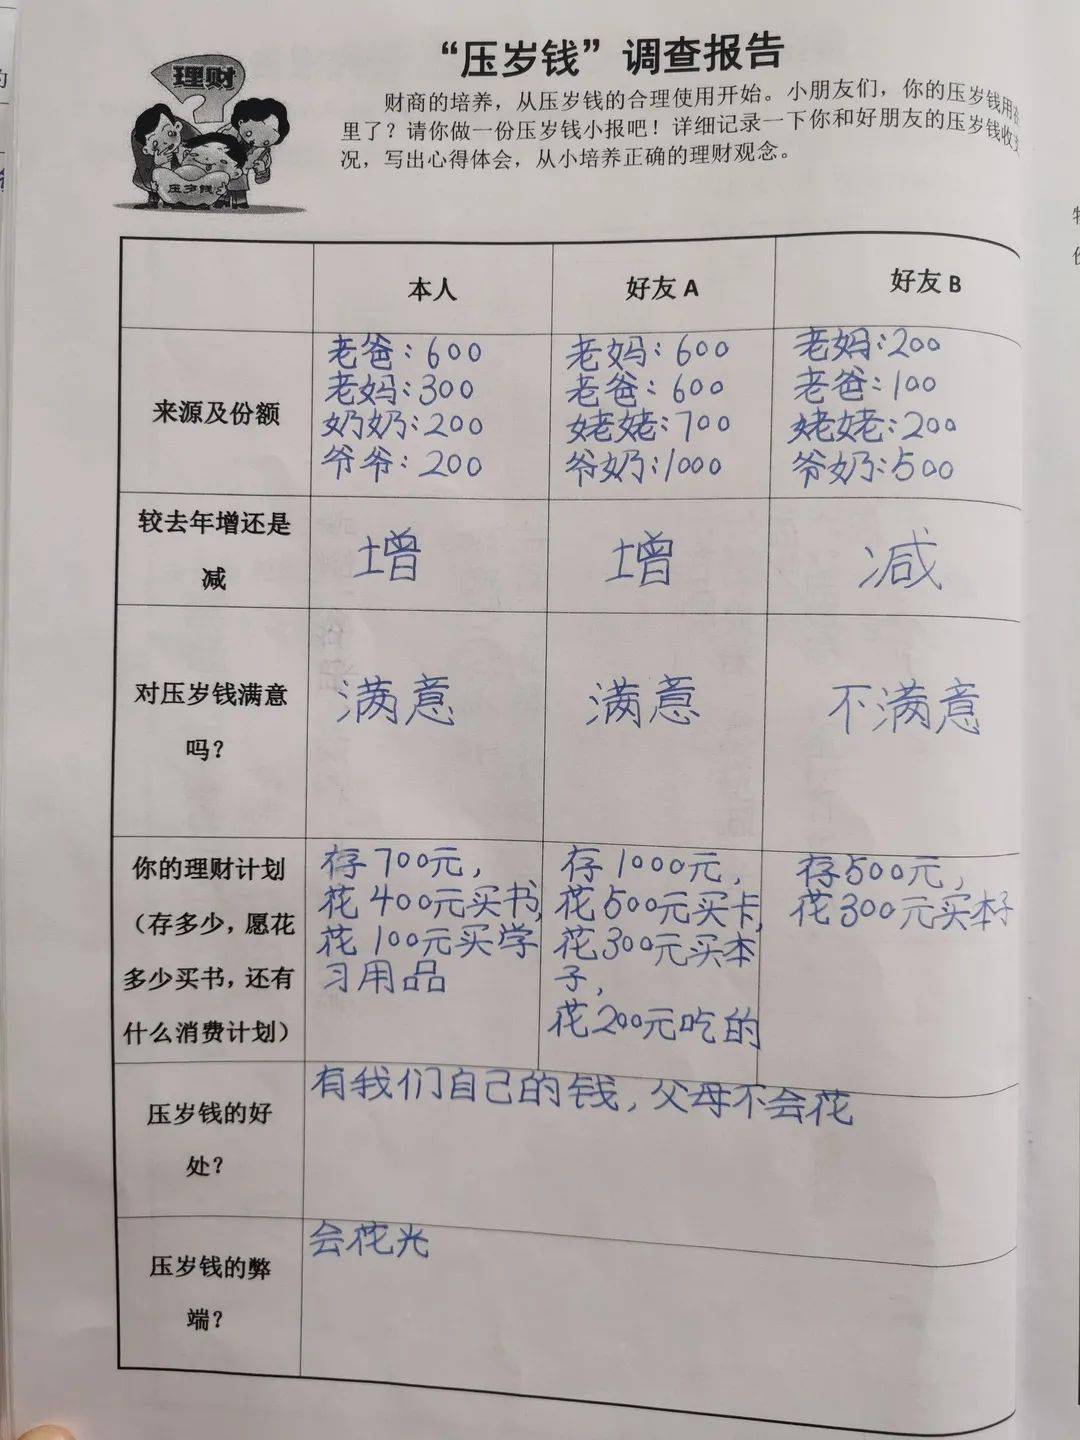 “压岁钱”调查报告
理财
压岁钱
财商的培养，从压岁钱的合理使用开始。小朋友们，你的压岁钱用
里了？请你做一份压岁钱小报吧！详细记录一下你和好朋友的压岁钱收
况，写出心得体会，从小培养正确的理财观念。
本人
好友 A
好友 B
来源及份额
老爸：600
老妈：300
奶奶：200
爷爷：200
老妈：600
老爸：600
姥姥：700
爷奶：1000
老妈：200
老爸：100
姥姥：200
爷奶：500
较去年增还是
减
增
增
减
对压岁钱满意
吗？
满意
满意
不满意
你的理财计划
（存多少，愿花
多少买书，还有
什么消费计划）
存700元，
花400元买书，
花100元买学
习用品
存1000元，
花500元买卡，
花300元买本
子，
花200元吃的
存500元，
花300元买本子
压岁钱的好
处？
有我们自己的钱，父母不会花
压岁钱的弊
端？
会花光